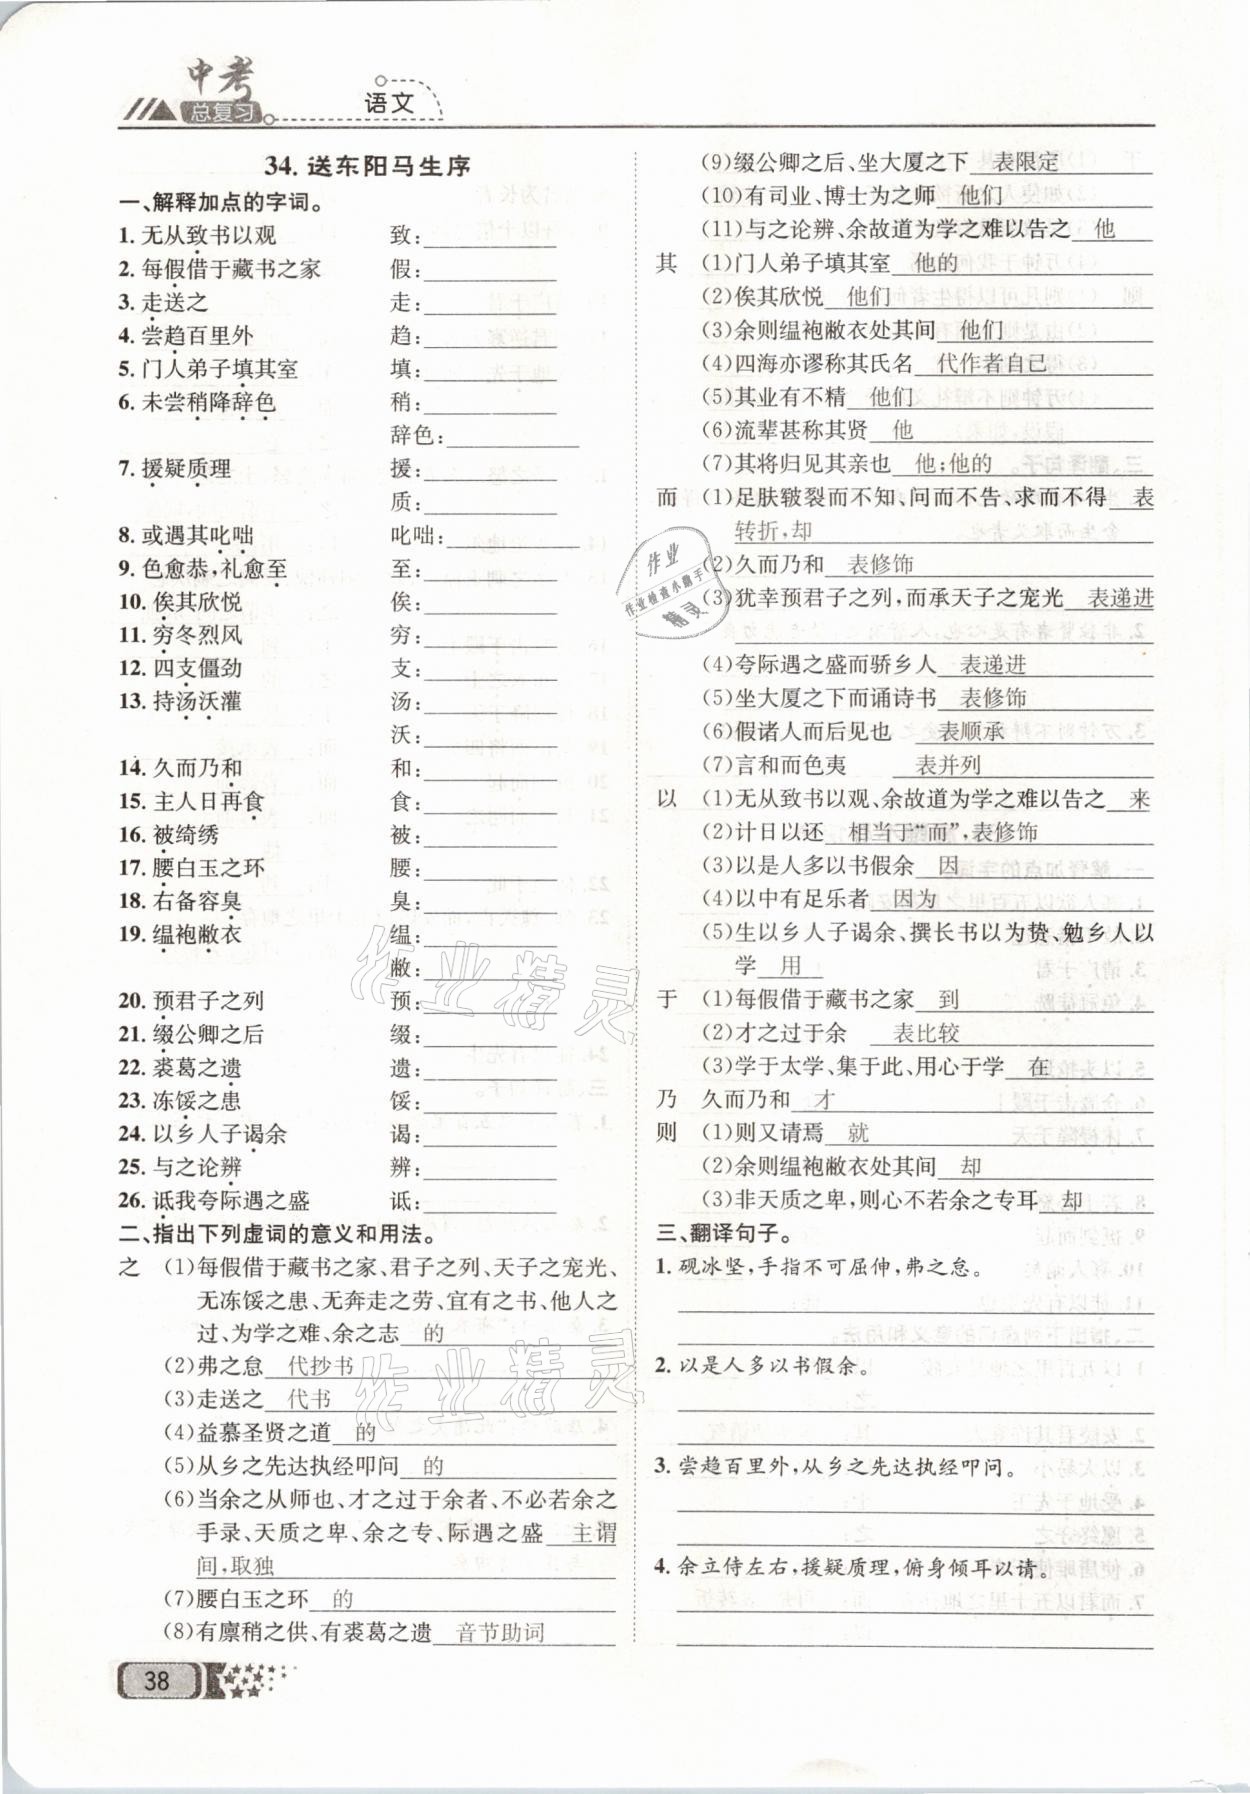 中考
总复习
语文
34. 送东阳马生序
一、解释加点的字词。
1. 无从致书以观 致:
2. 每假借于藏书之家 假:
3. 走送之 走:
4. 尝趋百里外 趋:
5. 门人弟子填其室 填:
6. 未尝稍降辞色 稍:
辞色:
7. 援疑质理 援:
质:
8. 或遇其叱咄 叱咄:
9. 色愈恭,礼愈至 至:
10. 俟其欣悦 俟:
11. 穷冬烈风 穷:
12. 四支僵劲 支:
13. 持汤沃灌 汤:
沃:
14. 久而乃和 和:
15. 主人日再食 食:
16. 被绮绣 被:
17. 腰白玉之环 腰:
18. 右备容臭 臭:
19. 缊袍敝衣 缊:
敝:
20. 预君子之列 预:
21. 缀公卿之后 缀:
22. 裘葛之遗 遗:
23. 冻馁之患 馁:
24. 以乡人子谒余 谒:
25. 与之论辨 辨:
26. 诋我夸际遇之盛 诋:
二、指出下列虚词的意义和用法。
之 (1)每假借于藏书之家、君子之列、天子之宠光、
无冻馁之患、无奔走之劳、宜有之书、他人之
过、为学之难、余之志 的
(2)弗之怠 代抄书
(3)走送之 代书
(4)益慕圣贤之道 的
(5)从乡之先达执经叩问 的
(6)当余之从师也、才之过于余者、不必若余之
手录、天质之卑、余之专、际遇之盛 主谓
间,取独
(7)腰白玉之环 的
(8)有廪稍之供、有裘葛之遗 音节助词
38
(9)缀公卿之后、坐大厦之下 表限定
(10)有司业、博士为之师 他们
(11)与之论辨、余故道为学之难以告之 他
其 (1)门人弟子填其室 他的
(2)俟其欣悦 他们
(3)余则缊袍敝衣处其间 他们
(4)四海亦谬称其氏名 代作者自己
(5)其业有不精 他们
(6)流辈甚称其贤 他
(7)其将归见其亲也 他;他的
而 (1)足肤皲裂而不知、问而不告、求而不得 表
转折,却
(2)久而乃和 表修饰
(3)犹幸预君子之列,而承天子之宠光 表递进
(4)夸际遇之盛而骄乡人 表递进
(5)坐大厦之下而诵诗书 表修饰
(6)假诸人而后见也 表顺承
(7)言和而色夷 表并列
以 (1)无从致书以观、余故道为学之难以告之 来
(2)计日以还 相当于“而”,表修饰
(3)以是人多以书假余 因
(4)以中有足乐者 因为
(5)生以乡人子谒余、撰长书以为贽、勉乡人以
学 用
于 (1)每假借于藏书之家 到
(2)才之过于余 表比较
(3)学于太学、集于此、用心于学 在
乃 久而乃和 才
则 (1)则又请焉 就
(2)余则缊袍敝衣处其间 却
(3)非天质之卑,则心不若余之专耳 却
三、翻译句子。
1. 砚冰坚,手指不可屈伸,弗之怠。
2. 以是人多以书假余。
3. 尝趋百里外,从乡之先达执经叩问。
4. 余立侍左右,援疑质理,俯身倾耳以请。
作业
作业检查小助手
精灵
作业精灵
作业精灵